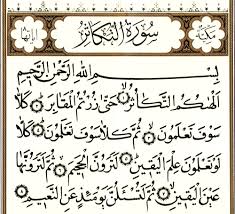 مكية سورة التكاثر آياتها
بسم الله الرحمن الرحيم
ألهىكم التكاثر حتى زرتم المقابر كلا
سوف تعلمون ثم كلا سوف تعلمون كلا
لو تعلمون علم اليقين لترون الجحيم ثم لترونها
عين اليقين ثم لتسئلن يومئذ عن النعيم